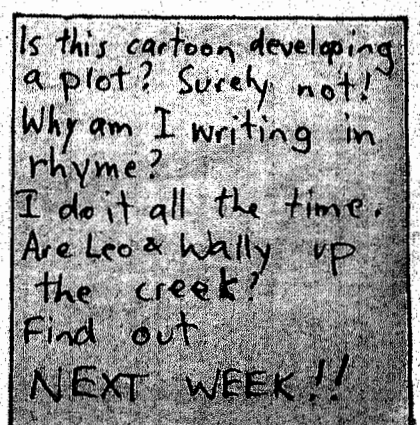 Is this cartoon developing
a plot? Surely not!
Why am I writing in
rhyme?
I do it all the time.
Are Leo & Wally up
the creek?
Find out
NEXT WEEK!!